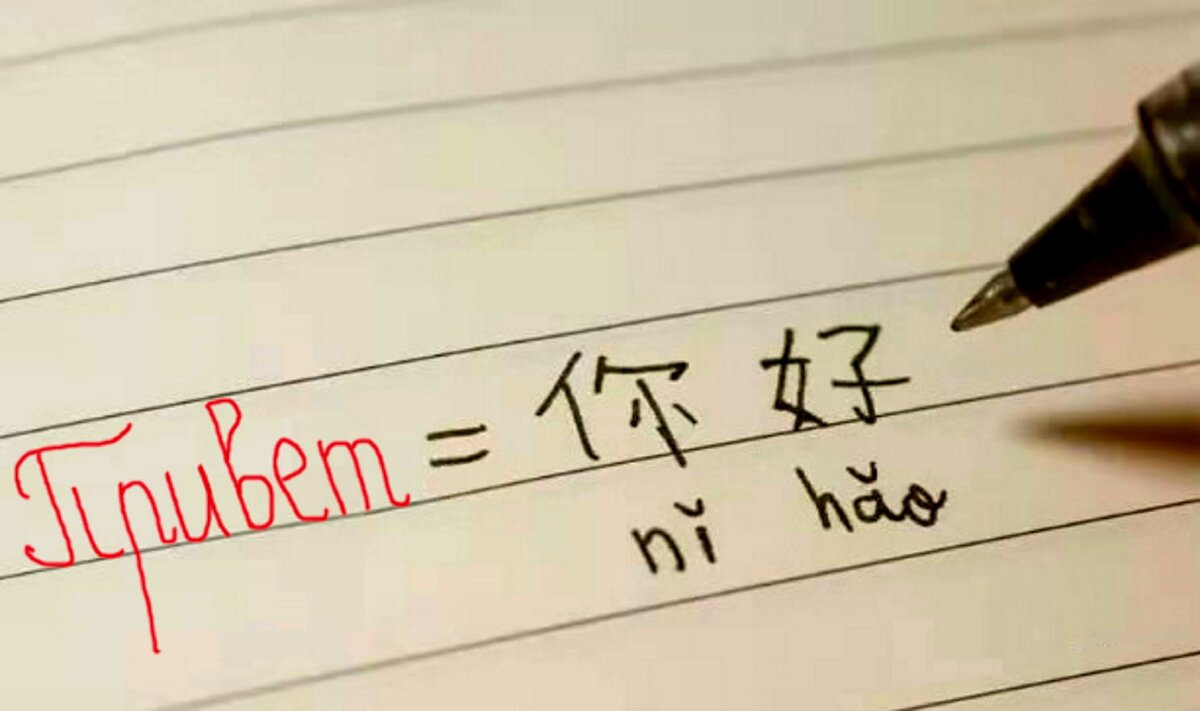 Привет = 你 好
nǐ hǎo